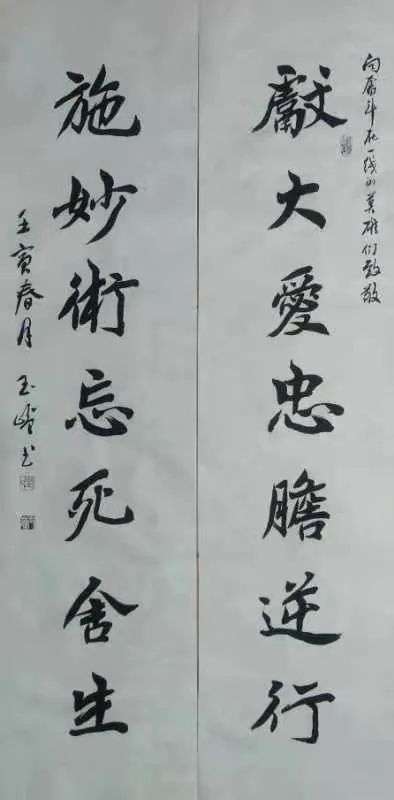 向奋斗在一线的英雄们致敬
獻大愛忠膽逆行
施妙術忘死舍生
壬寅春月 玉峰书